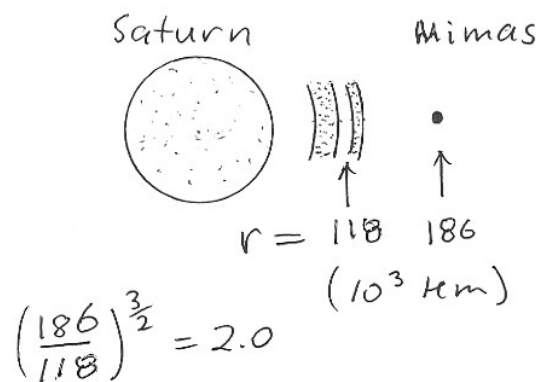 Saturn Mimas
r = 118 186
(10³ km)
(186/118)^(3/2) = 2.0